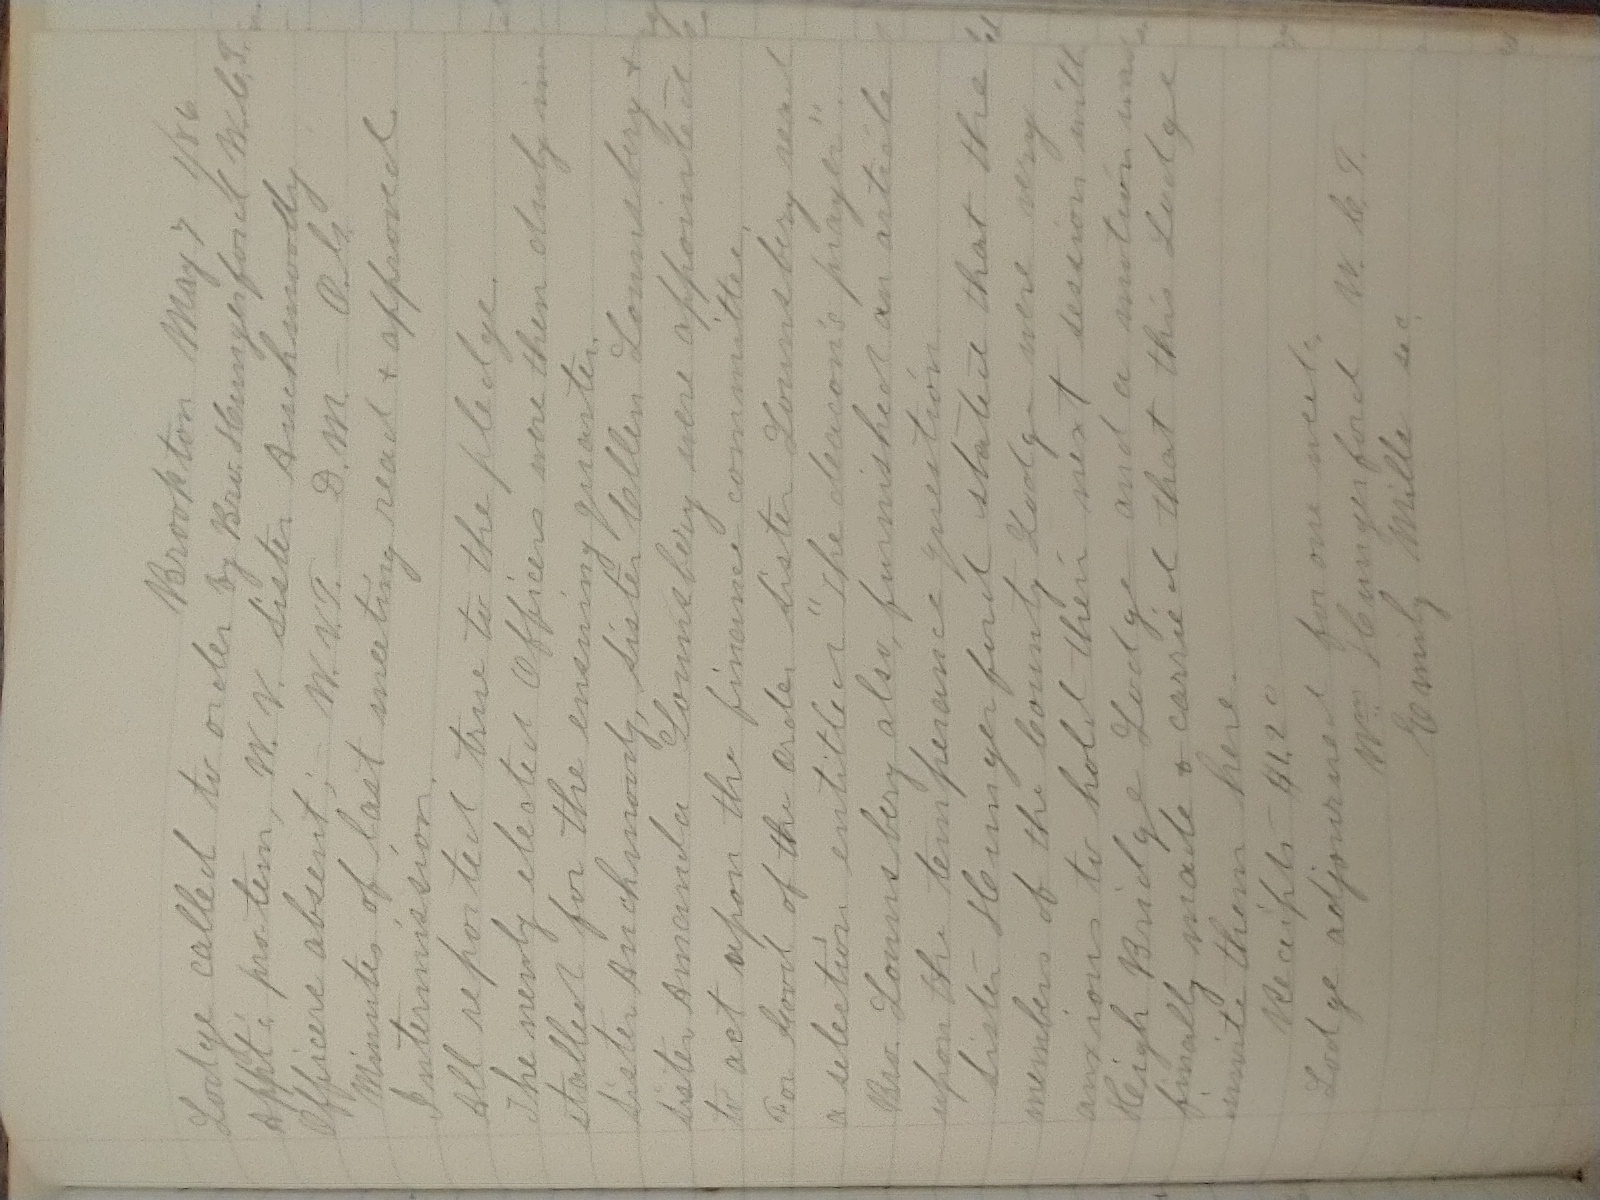 Brookton May 7 1/86
Lodge called to order by Bro. Hungerford W.C.T.
Appt'd pro-tem, W. V. Sister Auchmoody
Officers absent; – W.V.T. – D.M. – O.G.
Minutes of last meeting read + approved
Intermission.
All reported true to the pledge.
The newly elected Officers were then duly in
stalled for the ensuing quarter.
Sister Auchmoody, Sister Ellen Lounsbery +
Sister Amanda Lounsbery were appointed
to act upon the finance committee.
For Good of the Order Sister Lounsbery read
a selection entitled "The deacon's prayer".
Bro. Lounsbery also, furnished an article
upon the temperance question.
Sister Hungerford stated that the
members of the County Lodge were very
anxious to hold their next session with
High Bridge Lodge and a motion was
finally made & carried that this Lodge
invite them here.
Receipts $1.20
Lodge adjourned for one week.
Wm Hungerford W. C. T.
Emily Mills sec